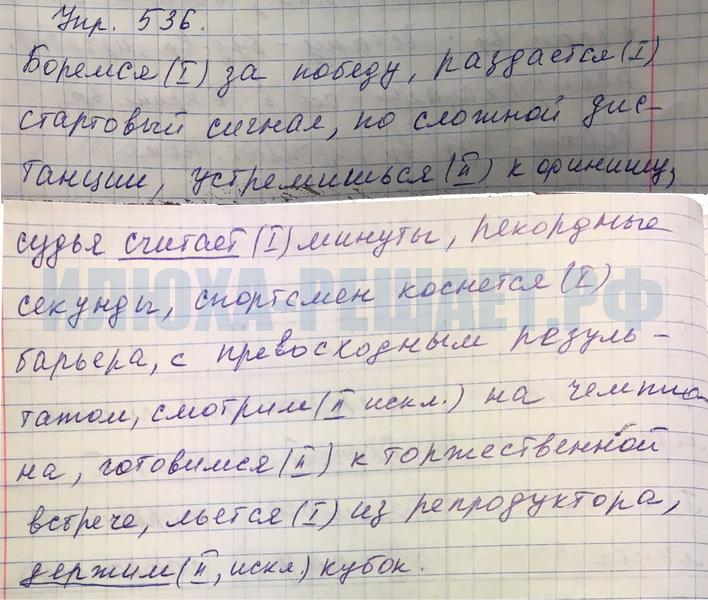 Упр. 536.
Боремся (I) за победу, раздастся (I)
стартовый сигнал, по сложной дис-
танции, устремишься (II) к финишу,
судья считает (I) минуты, рекордные
секунды, спортсмен коснется (I)
ИЛЮХА-РЕШАЕТ.РФ
барьера, с превосходным резуль-
татом, смотрим (II искл.) на чемпио-
на, готовимся (II) к торжественной
встрече, льется (I) из репродуктора,
держим (II, искл.) кубок.